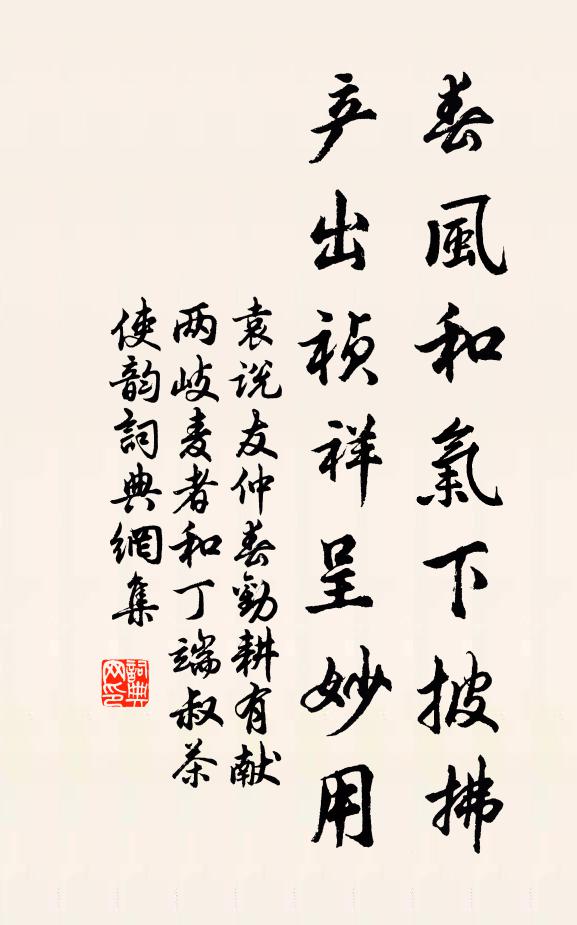 春風和氣下披拂
产出祯祥呈妙用
袁说友仲春勸耕有献
两岐麦者和丁端叔茶
使韵詞典網集
詞典网印